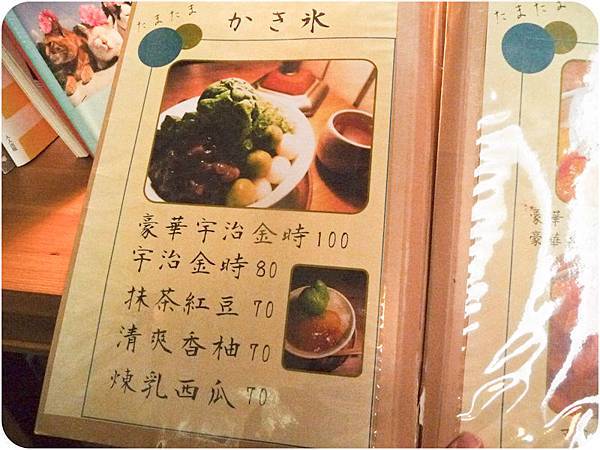 たまたま
かき氷
豪華宇治金時100
宇治金時80
抹茶紅豆 70
清爽香柚70
煉乳西瓜 70
たまたま
豪華
豪華